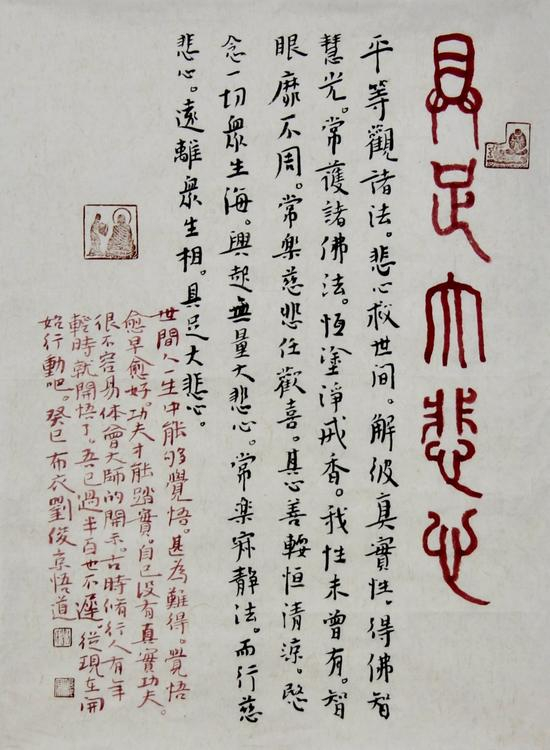 具足大悲心
平等觀諸法。悲心救世间。解彼真實性。得佛智
慧光。常護諸佛法。恆塗淨戒香。我性未曾有。智
眼靡不周。常樂慈悲任歡喜。具心善輭恒清涼。愍
念一切眾生海。興起無量大悲心。常樂寂靜法。而行慈
悲心。遠離眾生相。具足大悲心。
世間人一生中能够覺悟。甚為難得。覺悟
愈早愈好。功夫才能踏實。自己没有真實功夫。
很不容易体會大師的開示。古時脩行人有年
輕時就開悟了。吾已過半百也不遲。從現在開
始行動吧。癸巳布衣劉俊京悟道